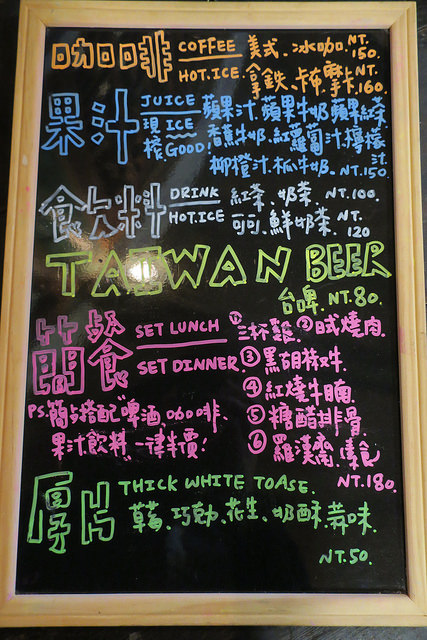 咖啡 COFFEE 美式.冰咖.NT.150.
HOT.ICE.拿鐵、卡布、摩卡.NT.160.
果汁 JUICE 蘋果汁.蘋果牛奶.蘋果紅茶
現 ICE 香蕉牛奶.紅蘿蔔汁.檸檬汁.
榨GOOD!
柳橙汁.木瓜牛奶.NT.150.
飲料 DRINK 紅茶、奶茶.NT.100.
HOT.ICE 可可.鮮奶茶.NT.120
TAIWAN BEER
台啤.NT.80.
簡餐 SET LUNCH ①三杯雞.②日式燒肉.
SET DINNER.③黑胡椒牛.
④紅燒牛腩.
P.S.簡餐搭配"啤酒、咖啡、 ⑤糖醋排骨.
果汁飲料"一律半價! ⑥羅漢齋.素食
NT.180.
厚片 THICK WHITE TOASE.
草莓、巧克力、花生、奶酥、蒜味.
NT.50.